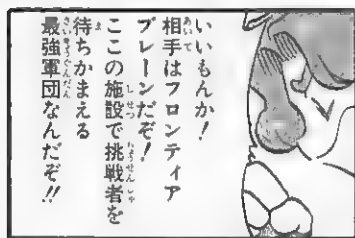 いいもんか!
相手はフロンティア
ブレーンだぞ!
ここの施設で挑戦者を
待ちかまえる
最強軍団なんだぞ!!